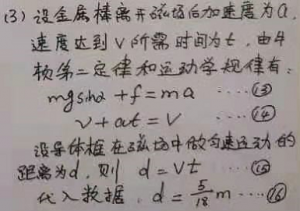 (3) 设金属棒离开磁场后加速度为a,
速度达到v所需时间为t, 由牛
顿第二定律和运动学规律有:
mgsinα + f = ma ……⑬
v + at = V ……⑭
设导体框在磁场中做匀速运动的
距离为d, 则 d = Vt ……⑮
代入数据, d = 5/18 m ……⑯